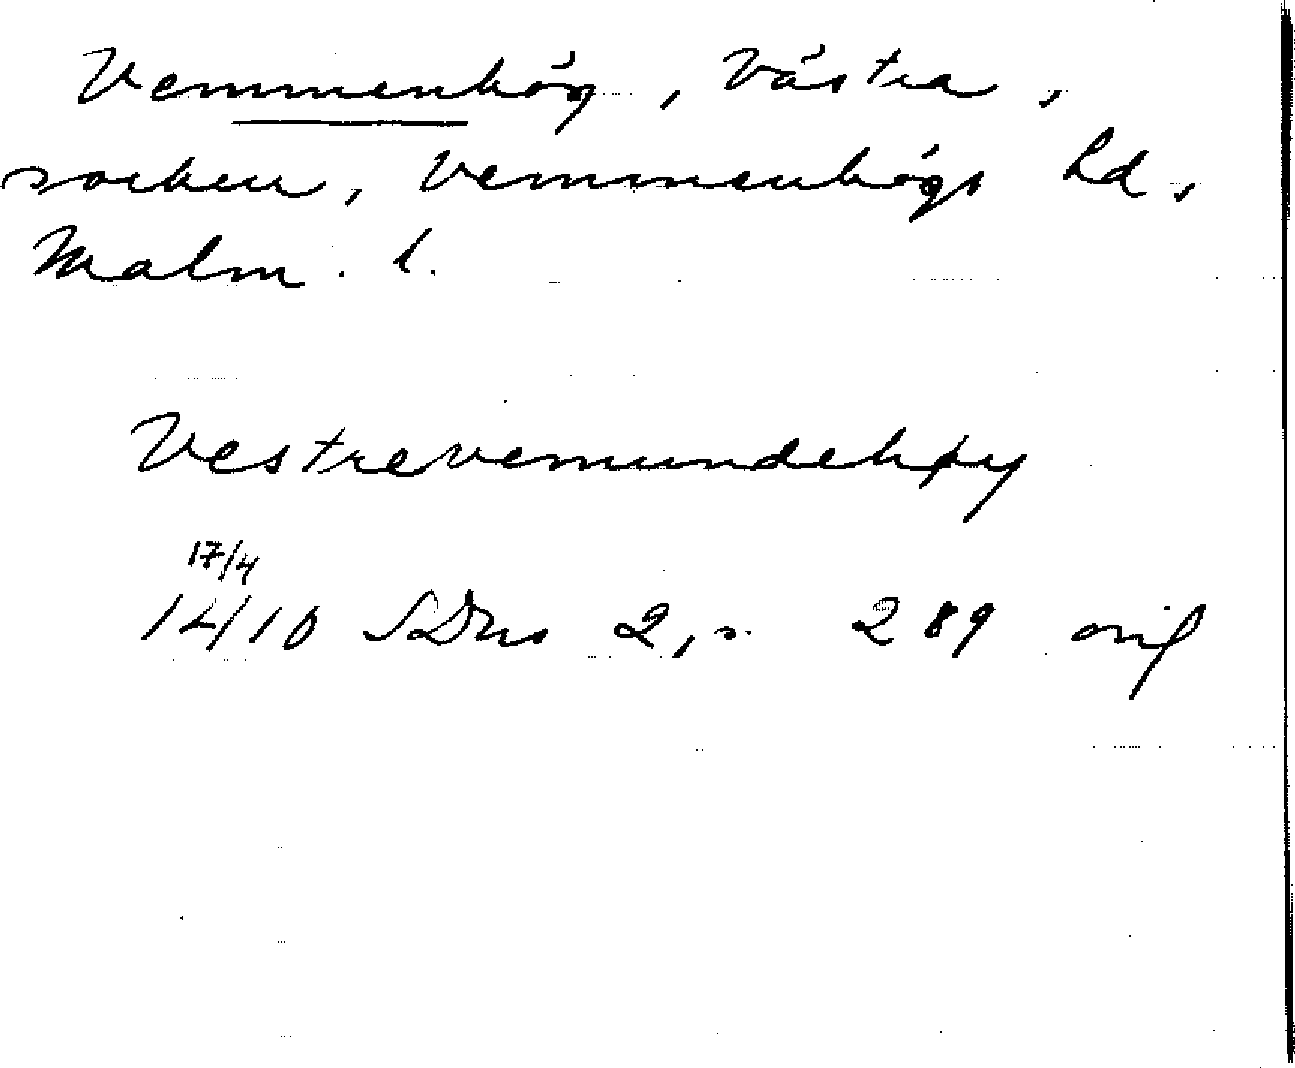 Vemmenhög, Västra,
socken, Vemmenhögs hd.
Malm. l.
Vestrevemundehøy
17/4
1410 SDns 2, s. 289 orig